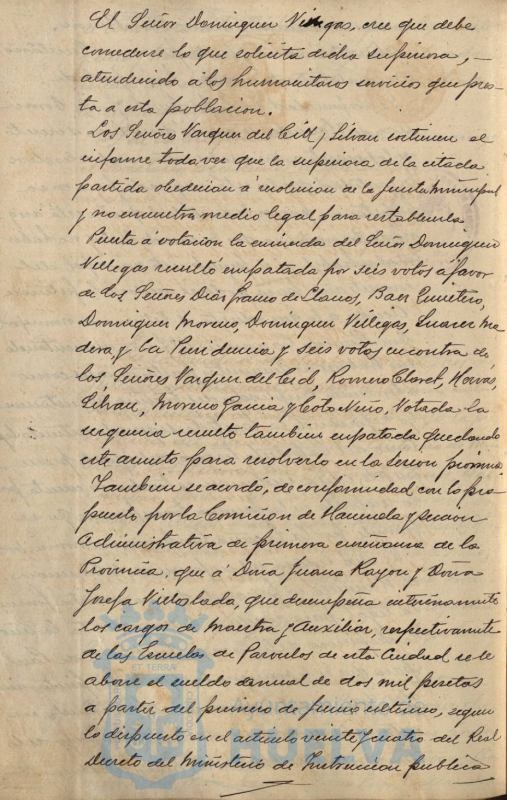 El Señor Dominguez Villegas, cree que debe
concederse lo que solicita dicha superiora, —
atendiendo á los humanitarios servicios que pres-
ta a esta población.
Los Señores Vazquez del Cid y Silvan sostienen el
informe toda vez que la superiora de la citada
partida obedecian á resolucion de la Junta Municipal
y no encuentra medio legal para restablecerla
Puesta á votacion la enmienda del Señor Dominguez
Villegas resultó empatada por seis votos á favor
de los Señores Diaz Franco de Llanos, Baez Quintero,
Dominguez Moreno, Dominguez Villegas, Suarez Ma
dera, y la Presidencia y seis votos en contra de
los, Señores Vazquez del Cid, Romero Claret, Hervás,
Silvan, Moreno Garcia y Coto Niño, Votada la
urgencia resulto tambien empatada quedando
este asunto para resolverlo en la sesion próxima
Tambien se acordó, de conformidad con lo pro
puesto por la Comision de Hacienda y seccion
Administrativa de primera enseñanza de la
Provincia, que á Doña Juana Rayon y Doña
Josefa Villoslada, que desempeña interinamente
los cargos de Maestra y Auxiliar, respectivamente
de las Escuelas de Parvulos de esta Ciudad se le
abone el sueldo anual de dos mil pesetas
a partir del primero de junio ultimo, segun
lo dispuesto en el articulo veinte y cuatro del Real
Decreto del Ministerio de Instruccion publica
HUELVA